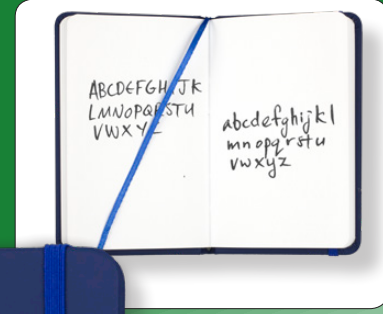 ABCDEFGHIJK
LMNOPQRSTU
VWXYZ
abcdefghijkl
mnopqrstu
vwxyz